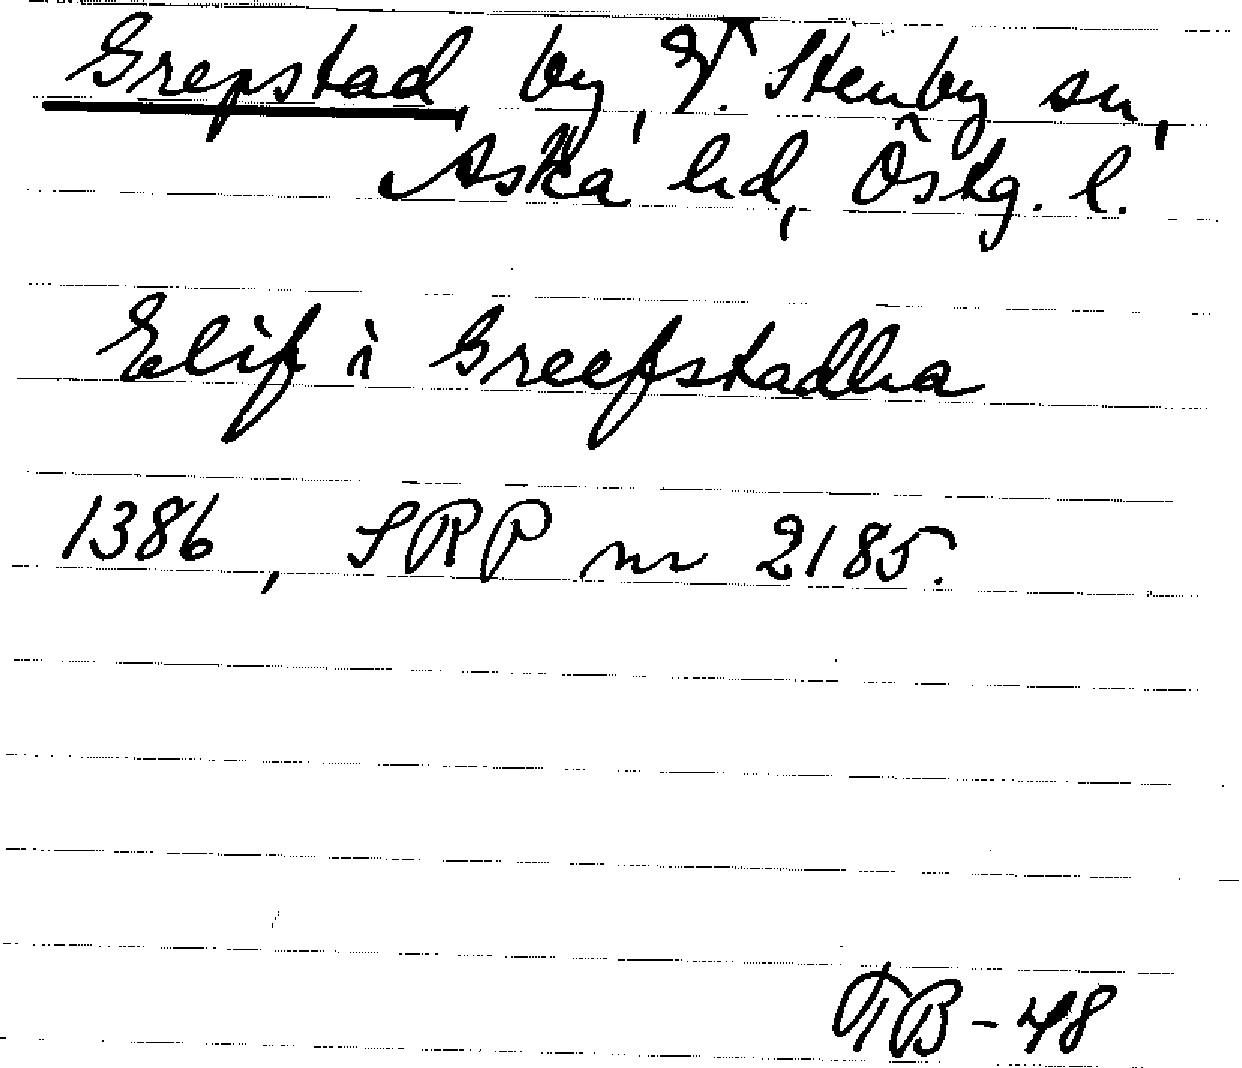 Grepstad, by, V. Stenby sn,
Aska hd, Östg. l.
Elif i Greefstadha
1386, SRP nr 2185.
TB-48